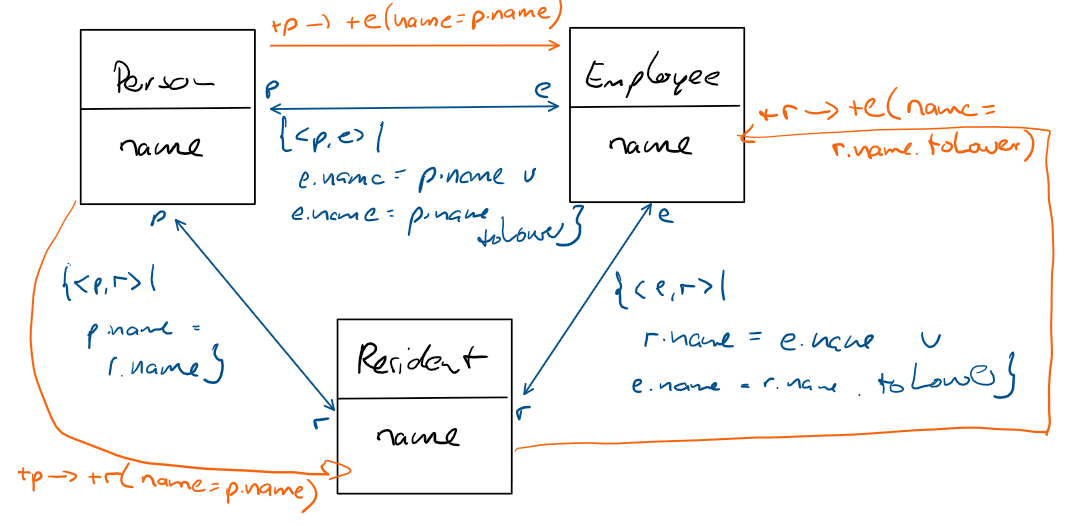 +p → +e(name=p.name)
Person
name
Employee
name
p
e
{<p,e>|
e.name = p.name ∪
e.name = p.name
toLower}
+r → +e(name=
r.name.toLower)
p
e
{<p,r>|
p.name =
r.name}
{<e,r>|
r.name = e.name ∪
e.name = r.name.toLower}
Resident
name
r
r
+p → +r(name=p.name)